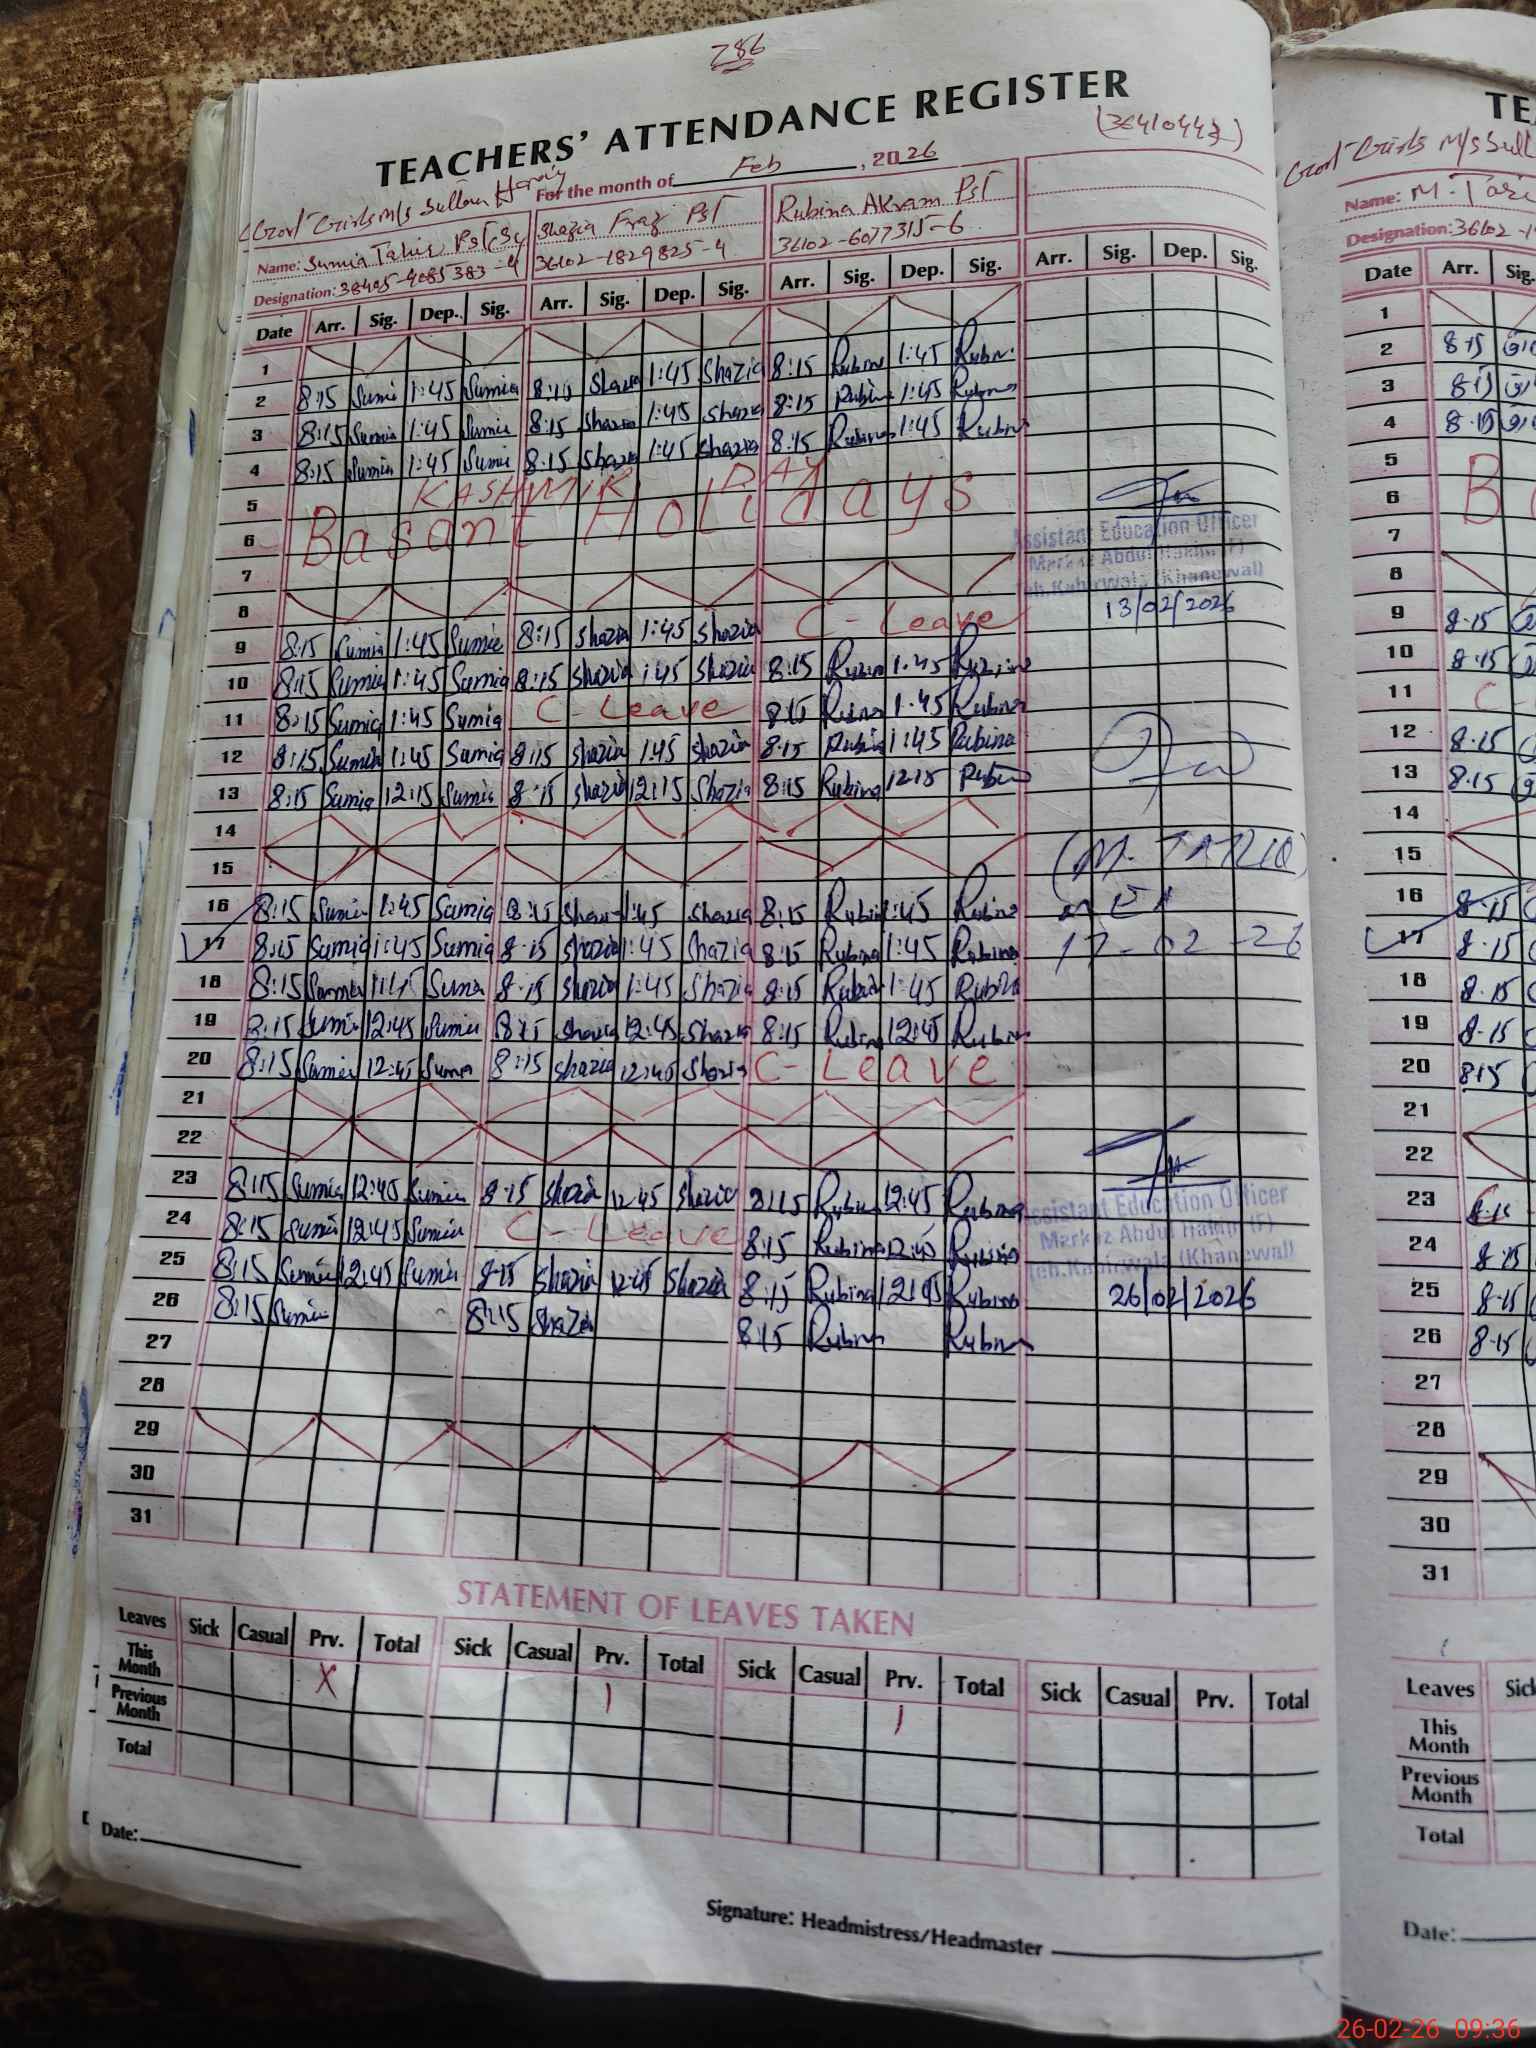 786
TEACHERS' ATTENDANCE REGISTER
(36410447)
Govt Girls M/s Sultan
For the month of Feb, 2026
Name: Sumia Tahir PST Shazia Fraz PST Rubina Akram PST
Designation: 38405-4085383-4 36102-1829825-4 36102-6077315-6
Date Arr. Sig. Dep. Sig. Arr. Sig. Dep. Sig. Arr. Sig. Dep. Sig. Arr. Sig. Dep. Sig.
1
2 8:15 Sumia 1:45 Sumia 8:15 Shazia 1:45 Shazia 8:15 Rubina 1:45 Rubina
3 8:15 Sumia 1:45 Sumia 8:15 Shazia 1:45 Shazia 8:15 Rubina 1:45 Rubina
4 8:15 Sumia 1:45 Sumia 8:15 Shazia 1:45 Shazia 8:15 Rubina 1:45 Rubina
5 KASHMIR DAY
6 Basant Holidays
7
8
Assistant Education Officer
Markaz Abdul Hakim (F)
Teh.Kabirwala (Khanewal)
13/02/2026
9 8:15 Sumia 1:45 Sumia 8:15 Shazia 1:45 Shazia C-Leave
10 8:15 Sumia 1:45 Sumia 8:15 Shazia 1:45 Shazia 8:15 Rubina 1:45 Rubina
11 8:15 Sumia 1:45 Sumia C-Leave 8:15 Rubina 1:45 Rubina
12 8:15 Sumia 1:45 Sumia 8:15 Shazia 1:45 Shazia 8:15 Rubina 1:45 Rubina
13 8:15 Sumia 12:15 Sumia 8:15 Shazia 12:15 Shazia 8:15 Rubina 12:15 Rubina
14
15
(M. TARIQ)
16 8:15 Sumia 1:45 Sumia 8:15 Shazia 1:45 Shazia 8:15 Rubina 1:45 Rubina MEA
17 8:15 Sumia 1:45 Sumia 8:15 Shazia 1:45 Shazia 8:15 Rubina 1:45 Rubina 17-02-26
18 8:15 Sumia 1:45 Sumia 8:15 Shazia 1:45 Shazia 8:15 Rubina 1:45 Rubina
19 8:15 Sumia 12:45 Sumia 8:15 Shazia 12:45 Shazia 8:15 Rubina 12:45 Rubina
20 8:15 Sumia 12:45 Sumia 8:15 Shazia 12:45 Shazia C-Leave
21
22
23 8:15 Sumia 12:45 Sumia 8:15 Shazia 12:45 Shazia 8:15 Rubina 12:45 Rubina
24 8:15 Sumia 12:45 Sumia C-Leave 8:15 Rubina 12:45 Rubina
25 8:15 Sumia 12:45 Sumia 8:15 Shazia 12:45 Shazia 8:15 Rubina 12:45 Rubina
26 8:15 Sumia 8:15 Shazia 8:15 Rubina Rubina
Assistant Education Officer
Markaz Abdul Hakim (F)
Teh.Kabirwala (Khanewal)
26/02/2026
27
28
29
30
31
STATEMENT OF LEAVES TAKEN
Leaves Sick Casual Prv. Total Sick Casual Prv. Total Sick Casual Prv. Total Sick Casual Prv. Total
This Month X 1 1
Previous Month
Total
Date:
Signature: Headmistress/Headmaster
TE
Govt Girls M/s
Name: M.
Designation: 36102
Date Arr. Sig.
1
2 8:15
3 8:15
4 8:15
5
6 B
7
8
9 8:15
10 8:15
11 C
12 8:15
13 8:15
14
15
16 8:15
17 8:15
18 8:15
19 8:15
20 8:15
21
22
23 8:15
24 8:15
25 8:15
26 8:15
27
28
29
30
31
Leaves Sick
This Month
Previous Month
Total
Date:
26-02-26 09:36